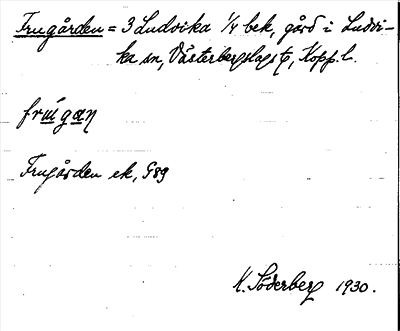 Frugården = 3 Ludvika 1/4 bek, gård i Ludvi-
ka sn, Västerbergslags tg, Kopp. l.
frúgan
Frugården ek, G89
K. Söderberg 1930.